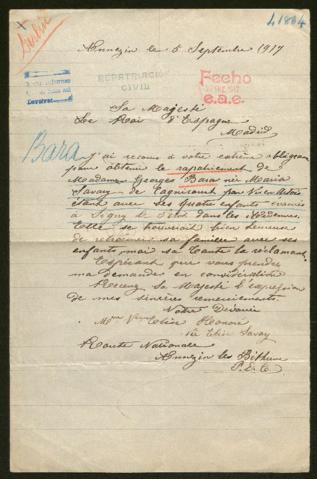 41804
Annezin le 5 Septembre 1917
REPATRIACION
CIVIL
Fecho
e.a.e.
Sa Majesté
Le Roi d'Espagne
Madrid
Bara
J'ai recours à votre extrême obligeance
pour obtenir le rapatriement de
Madame Georges Bara née Maria
Savary de
étant avec ses quatre enfants évacuée
à Signy le Petit dans les Ardennes.
Elle se trouverait bien heureuse
de retrouver sa famille avec ses
enfants, moi sa Tante la réclamant
Espérant que vous prendrez
ma demande en considération
Recevez Sa Majesté l'expression
de mes sincères remerciements.
Votre Dévouée
Mme Vve Elise Honoré
née Elise Savary
Route Nationale
Annezin les Béthune
P. d. C.